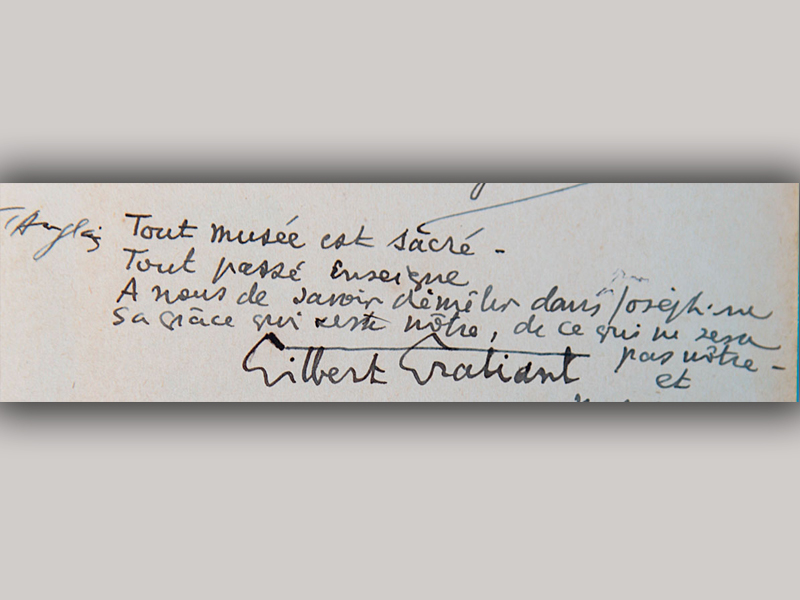 Tout musée est sâcré -
Tout passé enseigne
A nous de savoir démêler dans Joséphine
sa grâce qui reste nôtre, de ce qui ne sera
pas nôtre -
Gilbert Gratiant
et